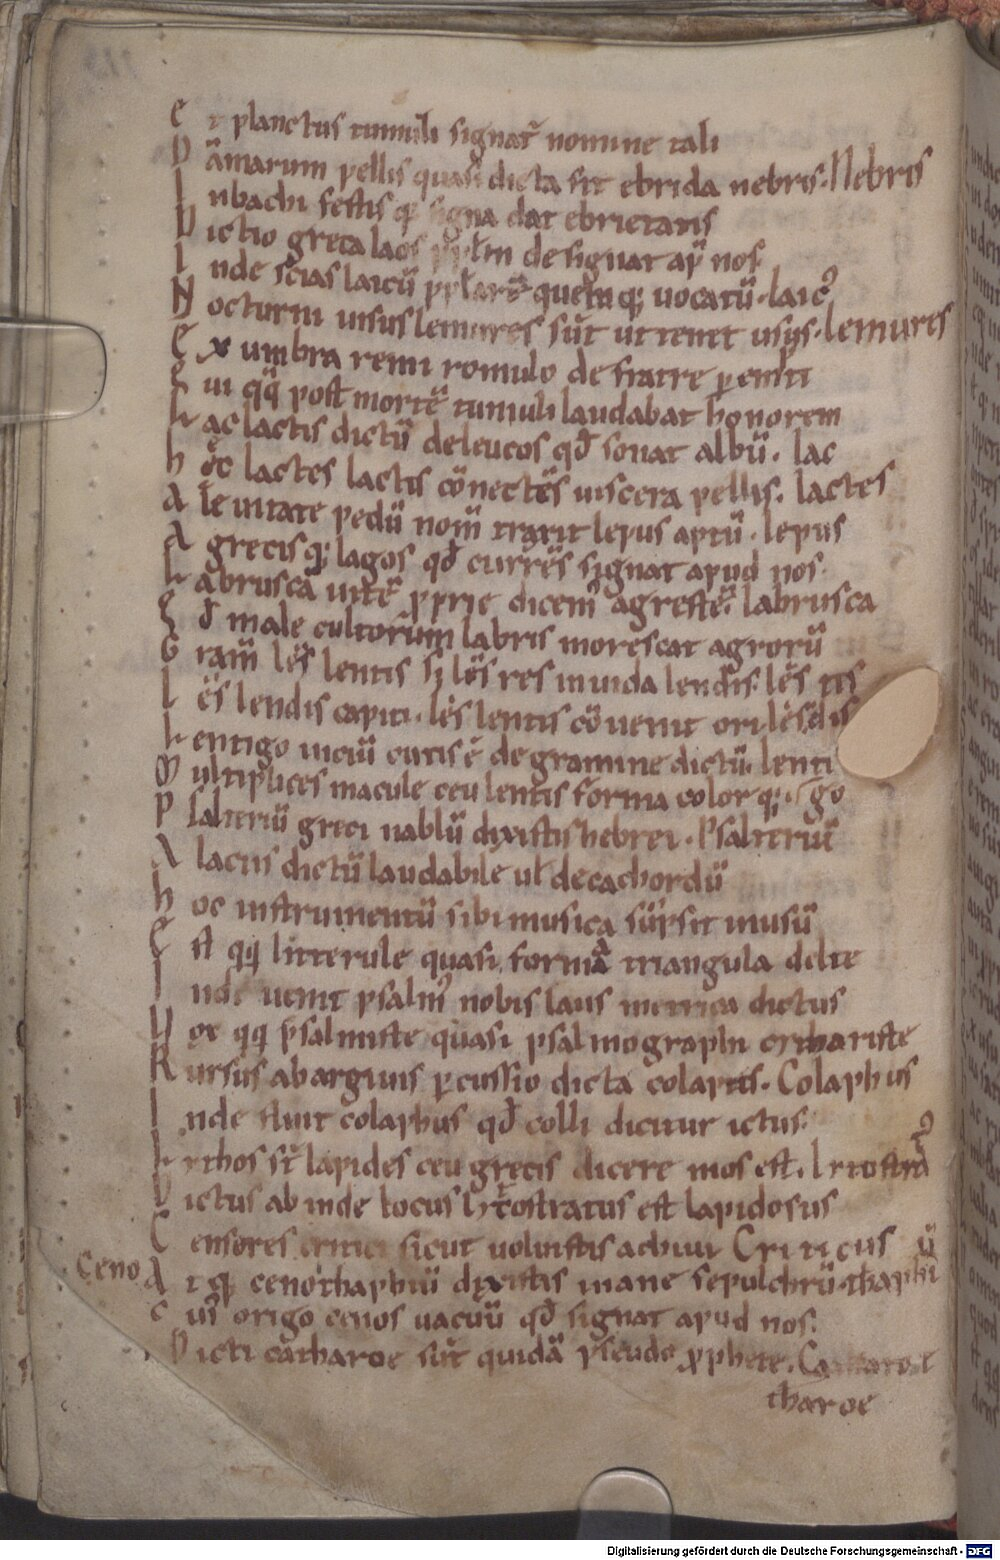 Et planctus tumuli signat᷑ nomine tali
Dāmarum pellis quasi dicta sit ebrida nebris. Nebris
Inbachi festis q; signa dat ebrietatis
Dictio greca laos ppłm designat ap̄ nos
Inde scias laicū quemq; uocatū. laicꝰ
Nocturni uisus lemures sūt ut tenet usꝰ. lemures
Ex umbra remi romulo de fratre ꝑempti
Cui qq̄ post mortē tumuli laudabat honorem
Lac lactis dictū deleucos qđ sonat albū. lac
hęc lactes lactis cōnectēs uiscera pellis. lactes
A leuitate pedū nom̄ traxit lepus aptū. lepus
A grecis q; lagos qđ currēs signat apud nos.
Labruscā uitē ꝓprie dicem̄ agrestē. labrusca
Qđ male cultorum labris morescat agrorū
Gram̄ lēs lentis s; lēs res inuida lendis. lēs tis
Lēs lendis capiti. lēs lentis cōuenit ori. lēs dis
Lentigo uiciū cutis ē de gramine dictū. lenti
Multiplices macule ceu lentis forma color q; go
Psalteriū greci nablū dixistis hebrei. Psalteriū
A lacus dictū laudabile ul decachordū
hoc instrumentū sibi musica sūpsit inusū
Est qq; litterule quasi formā triangula delte
Inde uenit psalmꝰ nobis laus metrica dictus
Hoc qq; psalmiste quasi psalmographi cithariste
Rursus abarguis ꝑcussio dicta colaptis. Colaphus
Inde fluit colaphus qđ colli dicitur ictus.
Lithos sr̄ lapides ceu grecis dicere mos est. Litostratꝰ
Dictus ab inde locus litostratus est lapidosus
Censores critici sicut uoluistis achiui Criticus ū
Ceno At q; cenothaphiū dixistis inane sepulchrū. thaphi
Cuiꝰ origo cenos uacuū qđ signat apud nos.
Dicti catharoe sūt quidā pseudo ꝓphete.
tharoe